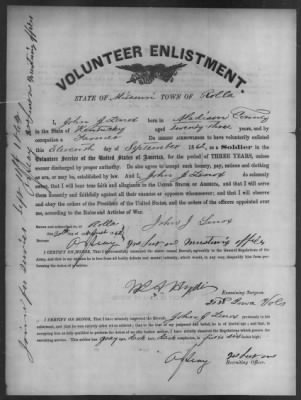 VOLUNTEER ENLISTMENT.
STATE OF Missouri TOWN OF Rolla
I, John J Lenox born in Madison County
in the State of Kentucky aged Twenty three years, and by
occupation a Farmer Do HEREBY ACKNOWLEDGE to have voluntarily enlisted
this Eleventh day of September 186 as a Soldier in the
Volunteer Service of the United States of America, for the period of THREE YEARS, unless
sooner discharged by proper authority. Do also agree to accept such bounty, pay, rations and clothing
as are, or may be, established by law. And I John J Lenox do solemnly
swear, that I will bear true faith and allegiance to the United States of America, and that I will
serve them honestly and faithfully against all their enemies or opposers whomsoever; and that I will observe
and obey the orders of the President of the United States, and the orders of the officers appointed over
me, according to the Rules and Articles of War.
Sworn and subscribed to, at Rolla
this day of John J Lenox
Mustering Officer
I CERTIFY ON HONOR, That I have carefully examined the above named Recruit, agreeably to the General Regulations of the
Army, and that in my opinion he is free from all bodily defects and mental infirmity, which would, in any way, disqualify him from performing
the duties of a soldier.
Examining Surgeon.
Iowa Vols
I CERTIFY ON HONOR, That I have minutely inspected the Recruit, John J Lenox previously to his
enlistment, and that he was entirely sober when enlisted; that, to the best of my judgment and belief, he is of lawful age; and that, in
accepting him as duly qualified to perform the duties of an able-bodied soldier, I have strictly observed the Regulations which govern the recruiting
service. This soldier has gray eyes, dark hair, dark complexion, is five feet inches high.
Recruiting Officer.
Joined for service Sept